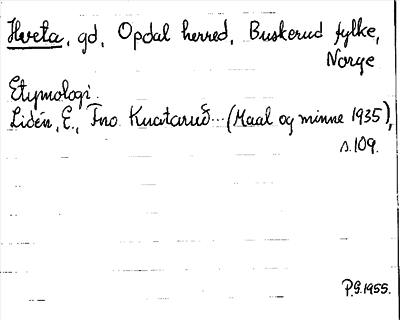 Hveta, gd, Opdal herred, Buskerud fylke,
Norge
Etymologi.
Lidén, E., Fno. Kuatarud... (Maal og minne 1935),
s. 109.
P.G. 1955.